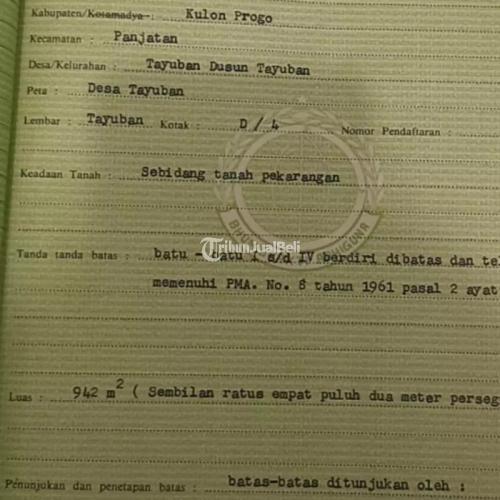 Kabupaten/Kotamadya : Kulon Progo
Kecamatan : Panjatan
Desa/Kelurahan : Tayuban Dusun Tayuban
Peta : Desa Tayuban
Lembar : Tayuban Kotak : D / 4 Nomor Pendaftaran :
Keadaan Tanah : Sebidang tanah pekarangan
TribunJualBeli
Tanda tanda batas : batu - batu I s/d IV berdiri dibatas dan tel
memenuhi PMA. No. 8 tahun 1961 pasal 2 ayat
Luas : 942 m² ( Sembilan ratus empat puluh dua meter perseg
Penunjukan dan penetapan batas : batas-batas ditunjukan oleh :